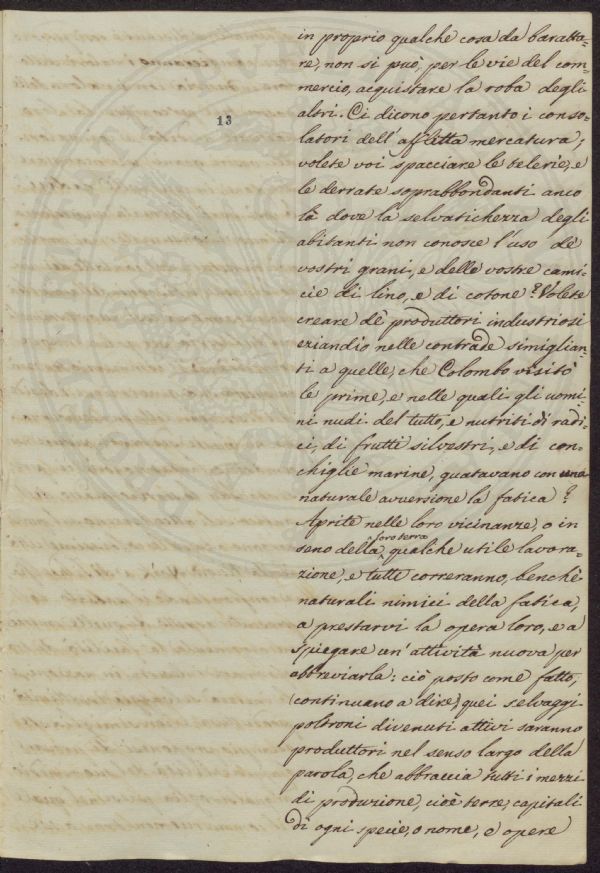 13
in proprio qualche cosa da baratta=
re, non si può, per le vie del com=
mercio, acquistare la roba degli
altri. Ci dicono pertanto i conso=
latori dell' afflitta mercatura;
volete voi spacciare le telerie, e
le derrate soprabbondanti anco
là dove la selvatichezza degli
abitanti non conosce l'uso de
vostri grani, e delle vostre cami=
cie di lino, e di cotone? Volete
creare dè produttori industriosi
eziandio nelle contrade simiglian=
ti a quelle, che Colombo visitò
le prime, e nelle quali gli uomi=
ni nudi del tutto, e nutriti di radi=
ci, di frutti silvestri, e di con=
chiglie marine, guatavano con una
naturale avversione la fatica?
Aprite nelle loro vicinanze, o in
seno della loro terra qualche utile lavora=
zione, e tutti correranno, benchè
naturali nimici della fatica,
a prestarvi la opera loro, e a
spiegare un' attività nuova per
abbreviarla: ciò posto come fatto,
(continuano a dire) quei selvaggi
poltroni divenuti attivi saranno
produttori nel senso largo della
parola, che abbraccia tutti i mezzi
di produzione, cioè terre, capitali
di ogni specie, o nome, e opere